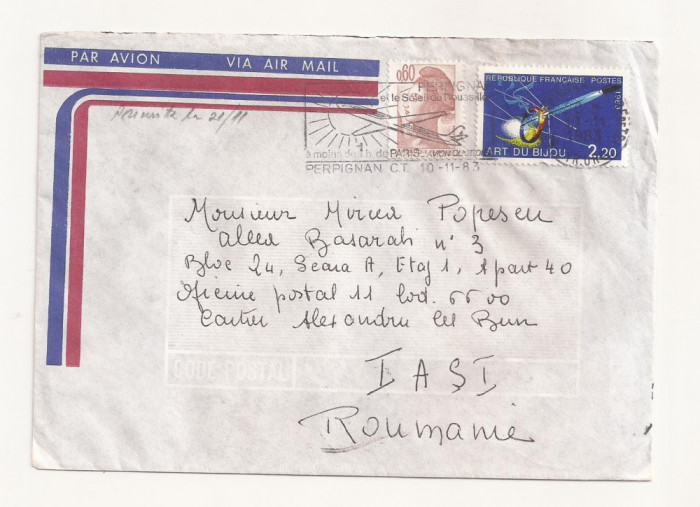 PAR AVION VIA AIR MAIL
0,60
REPUBLIQUE FRANÇAISE POSTES
1983
PERPIGNAN
et le Soleil du Roussillon
ART DU BIJOU
2,20
à moins de 1 h. de PARIS
PERPIGNAN C.T. 10-11-83
la 21/11
Monsieur Mircea Popescu
allea Basarab n° 3
Bloc 24, Scara A, Etaj 1, Apart 40
Oficine postal 11 Cod. 6600
Cartier Alexandru cel Bun
IAŞI
Roumanie
COD POSTAL